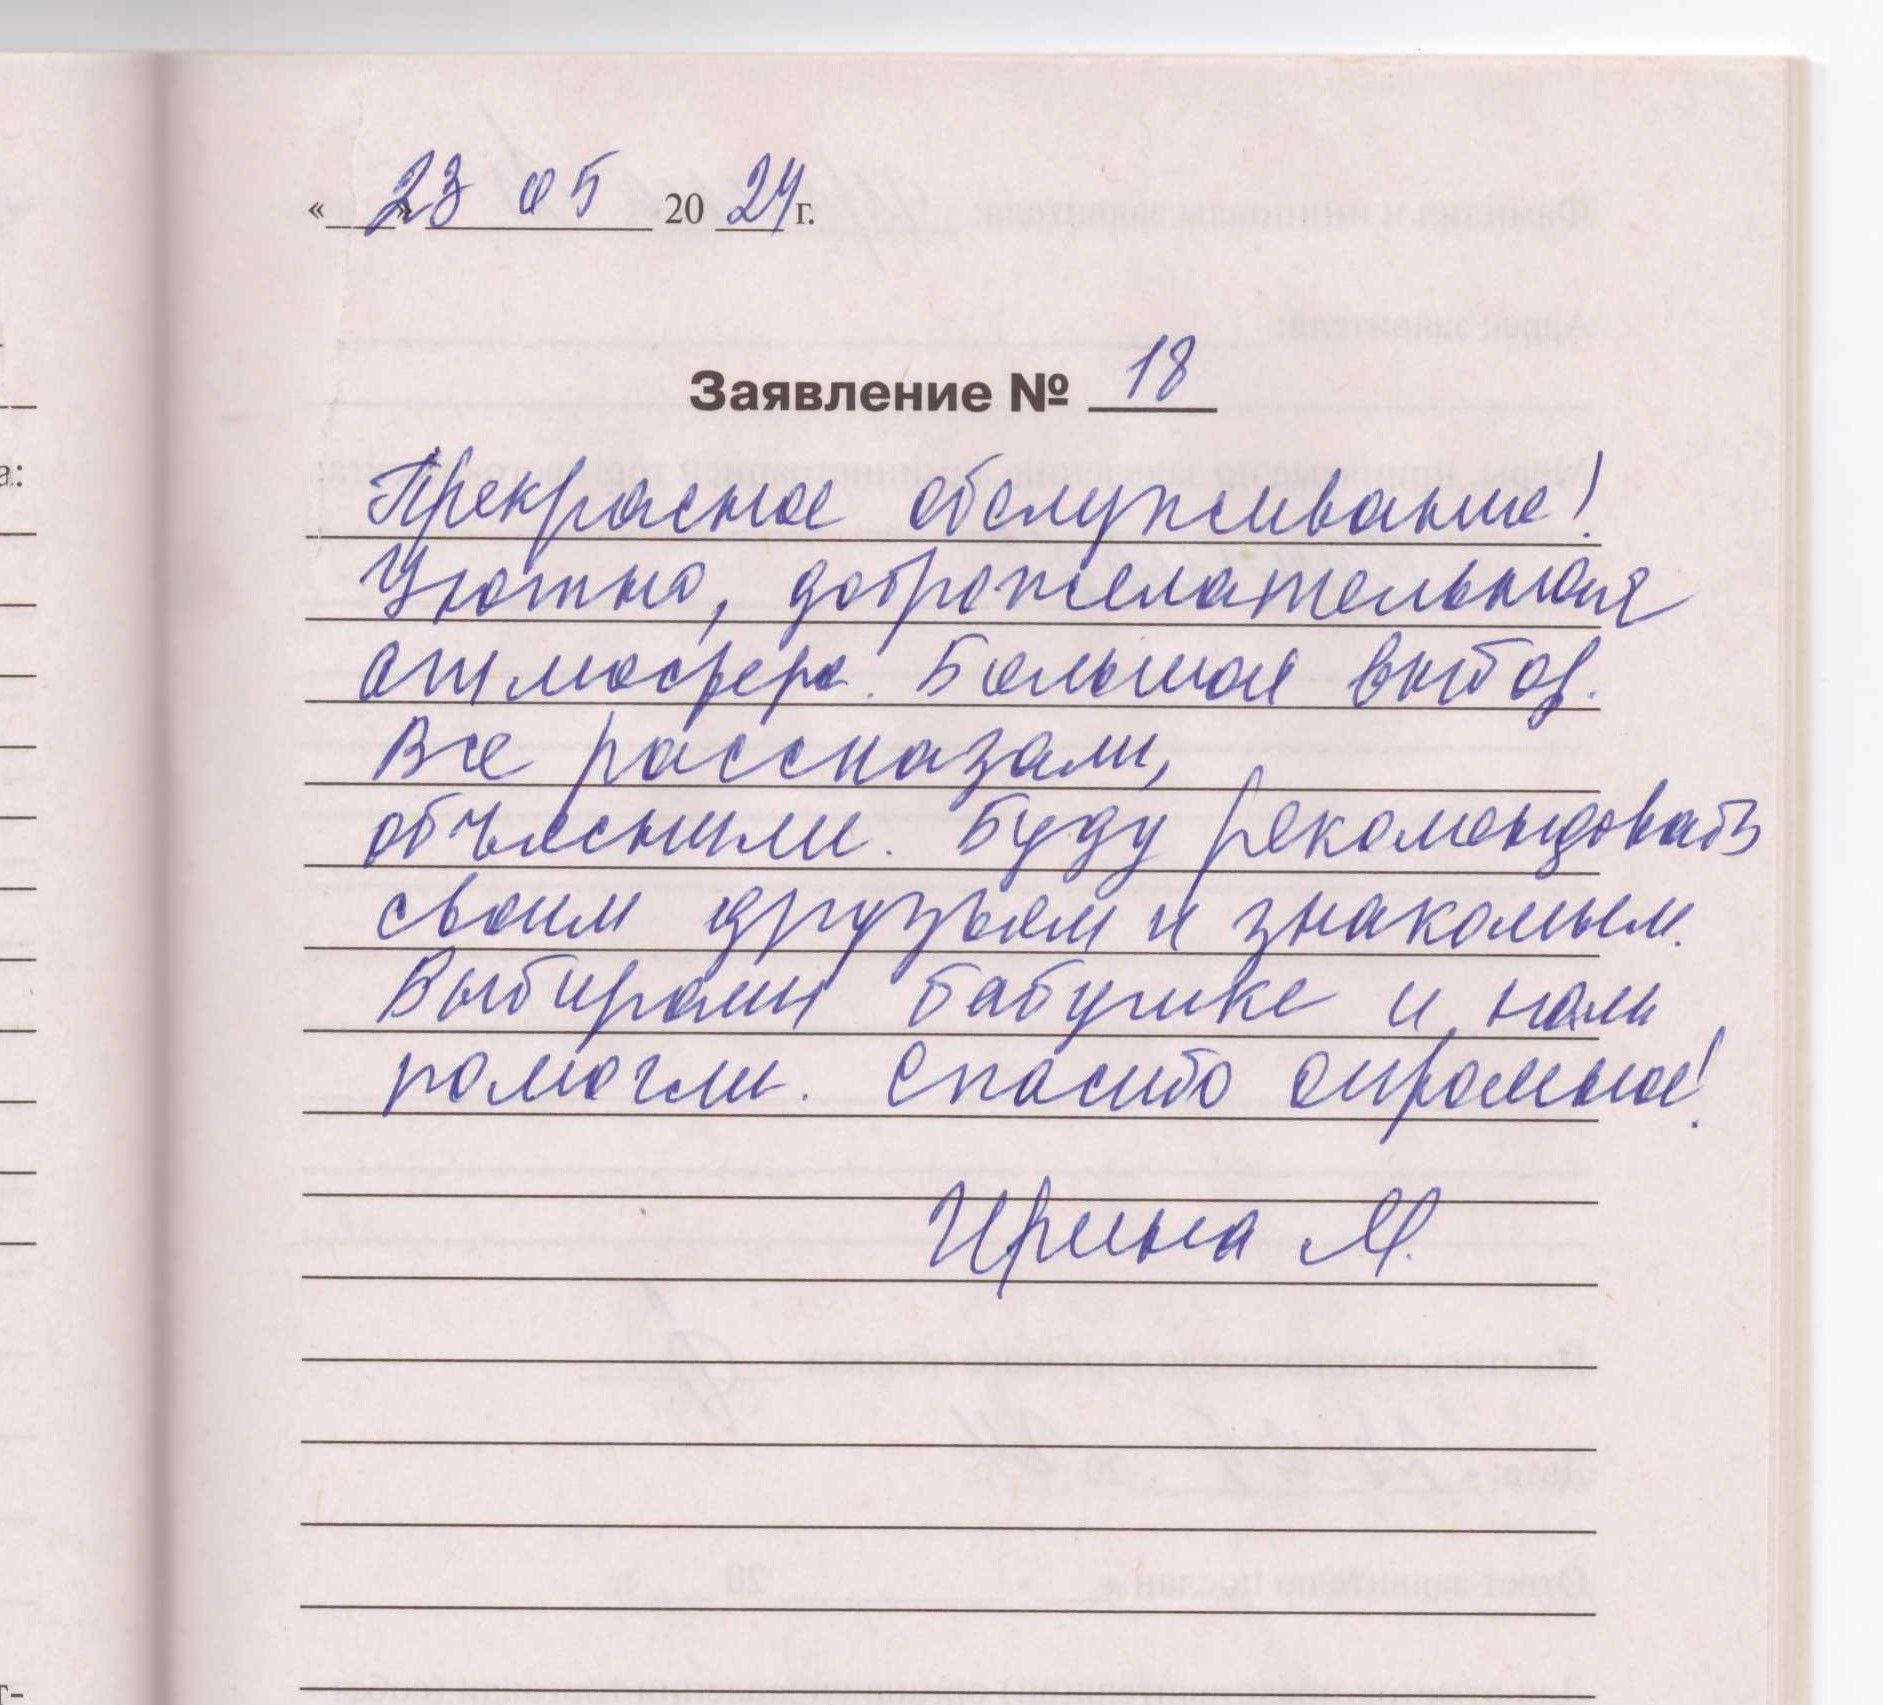 « 23 » 05 20 24 г.
Заявление № 18
Прекрасное обслуживание!
Уютно, доброжелательная
атмосфера. Большой выбор.
Все рассказали,
объяснили. Буду рекомендовать
своим друзьям и знакомым.
Выбирали бабушке и нам
помогли. Спасибо огромное!
Ирина М.